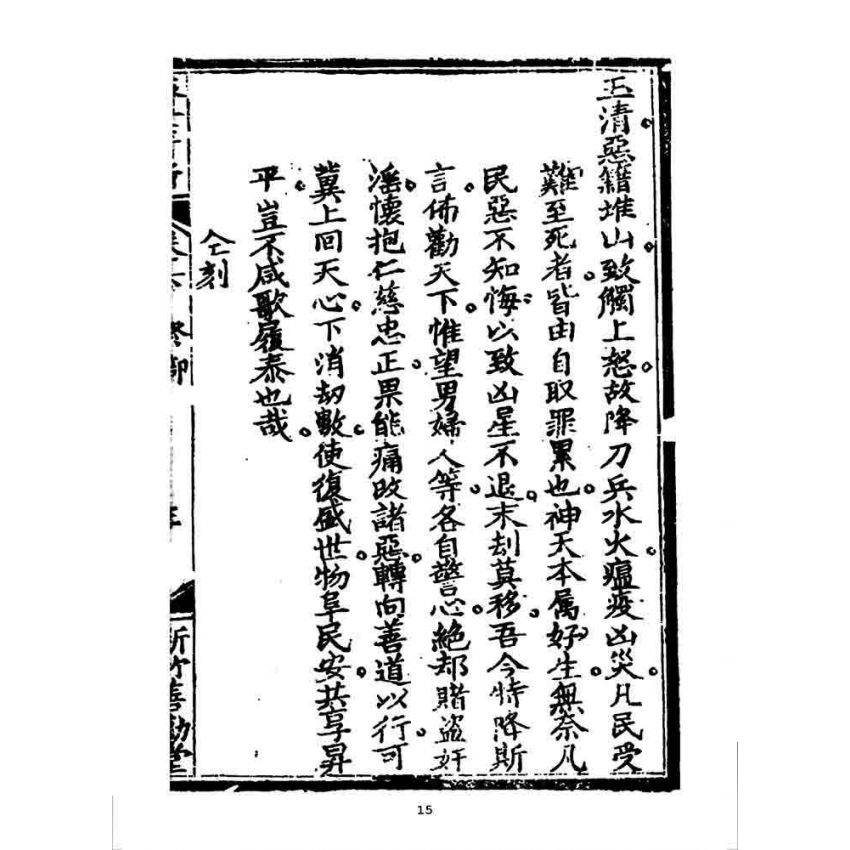 玉清惡籍堆山致觸上怒故降刀兵水火瘟疫凶災凡民受
難至死者皆由自取罪累也神天本属好生無奈凡
民惡不知悔以致凶星不退末刦莫移吾今特降斯
言佈勸天下惟望男婦人等各自警心絕却賭盜奸
淫懷抱仁慈忠正果能痛改諸惡轉向善道以行可
冀上回天心下消劫數使復盛世物阜民安共享昇
平豈不咸歌履泰也哉
仝刻
新竹善勸堂
15